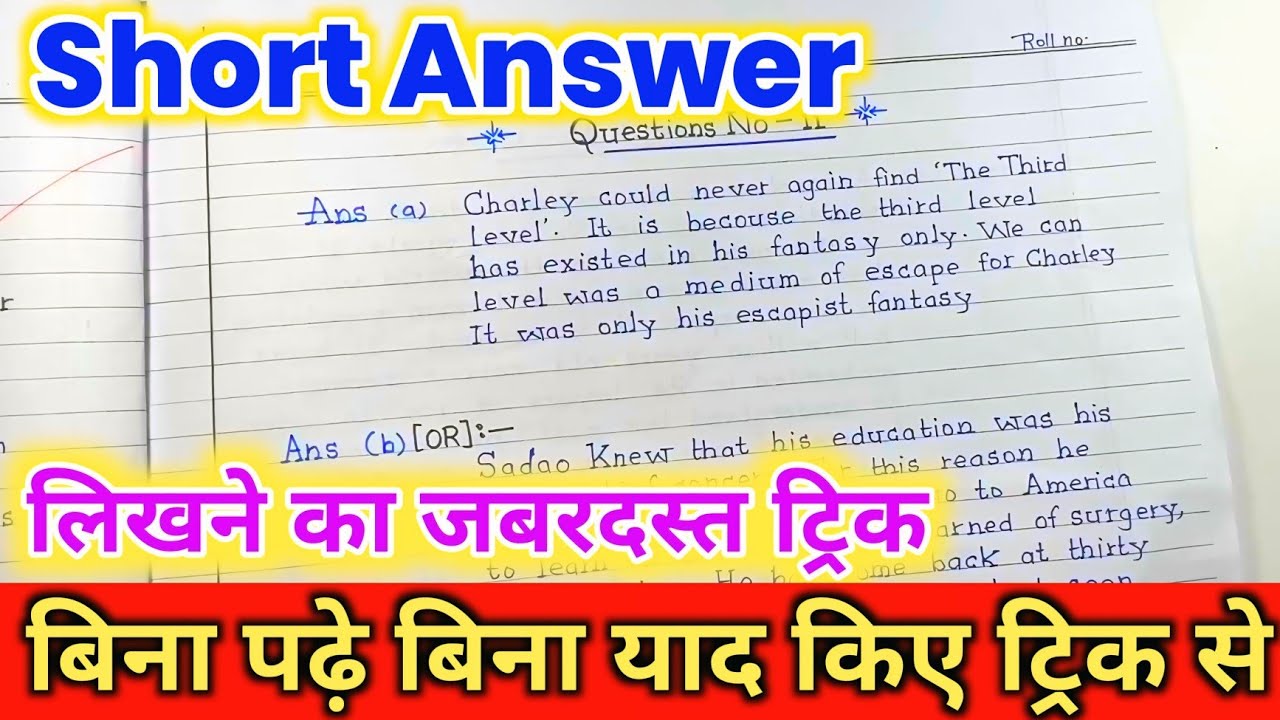 Short Answer
Roll no.
Questions No - 11
Ans (a) Charley could never again find 'The Third
Level'. It is becouse the third level
has existed in his fantasy only. We can
level was a medium of escape for Charley
It was only his escapist fantasy
r
Ans (b) [OR]:-
Sadao Knew that his education was his
this reason he
to America
लिखने का जबरदस्त ट्रिक
s
of surgery,
to
back at thirty
बिना पढ़े बिना याद किए ट्रिक से